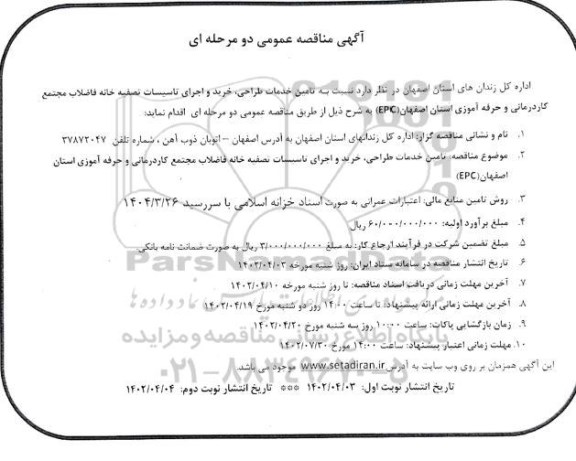 آگهی مناقصه عمومی دو مرحله ای
اداره کل زندان های استان اصفهان در نظر دارد نسبت به تامین خدمات طراحی، خرید و اجرای تاسیسات تصفیه خانه فاضلاب مجتمع
کاردرمانی و حرفه آموزی استان اصفهان(EPC) به شرح ذیل از طریق مناقصه عمومی دو مرحله ای اقدام نماید:
۱. نام و نشانی مناقصه گزار: اداره کل زندانهای استان اصفهان به آدرس اصفهان – اتوبان ذوب آهن ، شماره تلفن ۳۷۸۷۲۰۴۷
۲. موضوع مناقصه: تامین خدمات طراحی، خرید و اجرای تاسیسات تصفیه خانه فاضلاب مجتمع کاردرمانی و حرفه آموزی استان
اصفهان(EPC)
۳. روش تامین منابع مالی: اعتبارات عمرانی به صورت اسناد خزانه اسلامی با سررسید ۱۴۰۴/۳/۲۶
۴. مبلغ برآورد اولیه: ۶۰/۰۰۰/۰۰۰/۰۰۰ ریال
۵. مبلغ تضمین شرکت در فرآیند ارجاع کار: به مبلغ ۳/۰۰۰/۰۰۰/۰۰۰ ریال به صورت ضمانت نامه بانکی
۶. تاریخ انتشار مناقصه در سامانه ستاد ایران: روز شنبه مورخه ۱۴۰۲/۰۴/۰۳
۷. آخرین مهلت زمانی دریافت اسناد مناقصه: تا روز شنبه مورخه ۱۴۰۲/۰۴/۱۰
۸. آخرین مهلت زمانی ارائه پیشنهاد: تا ساعت ۱۴:۰۰ روز دو شنبه مورخ ۱۴۰۲/۰۴/۱۹
۹. زمان بازگشایی پاکات: ساعت ۱۰:۰۰ روز سه شنبه مورخ ۱۴۰۲/۰۴/۲۰
۱۰. مهلت زمانی اعتبار پیشنهاد: ساعت ۱۴:۰۰ مورخ ۱۴۰۲/۰۷/۳۰
این آگهی همزمان بر روی وب سایت به آدرس www.setadiran.ir موجود می باشد
تاریخ انتشار نوبت اول: ۱۴۰۲/۰۴/۰۳ *** تاریخ انتشار نوبت دوم: ۱۴۰۲/۰۴/۰۴
ParsNamadData
پایگاه اطلاع رسانی مناقصه و مزایده
۰۲۱-۸۸۳۴۹۶۷۰-۵